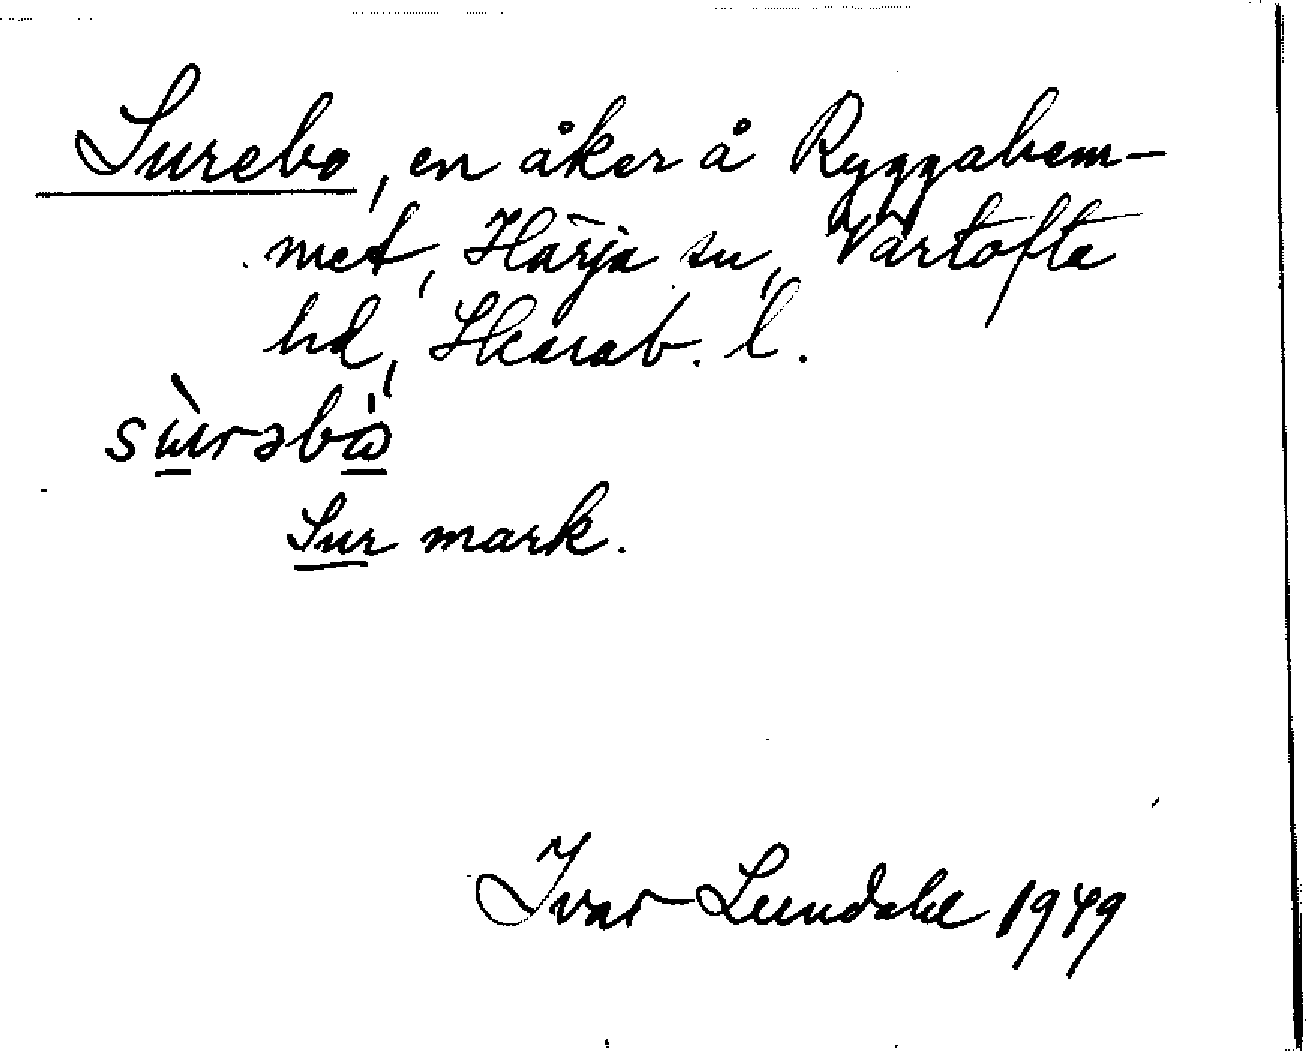 Surebo, en åker å Ryggahem-
met, Härja sn, Vartofta
hd, Skarab. l.
sùrəbɷ
Sur mark.
Ivar Lundahl 1949